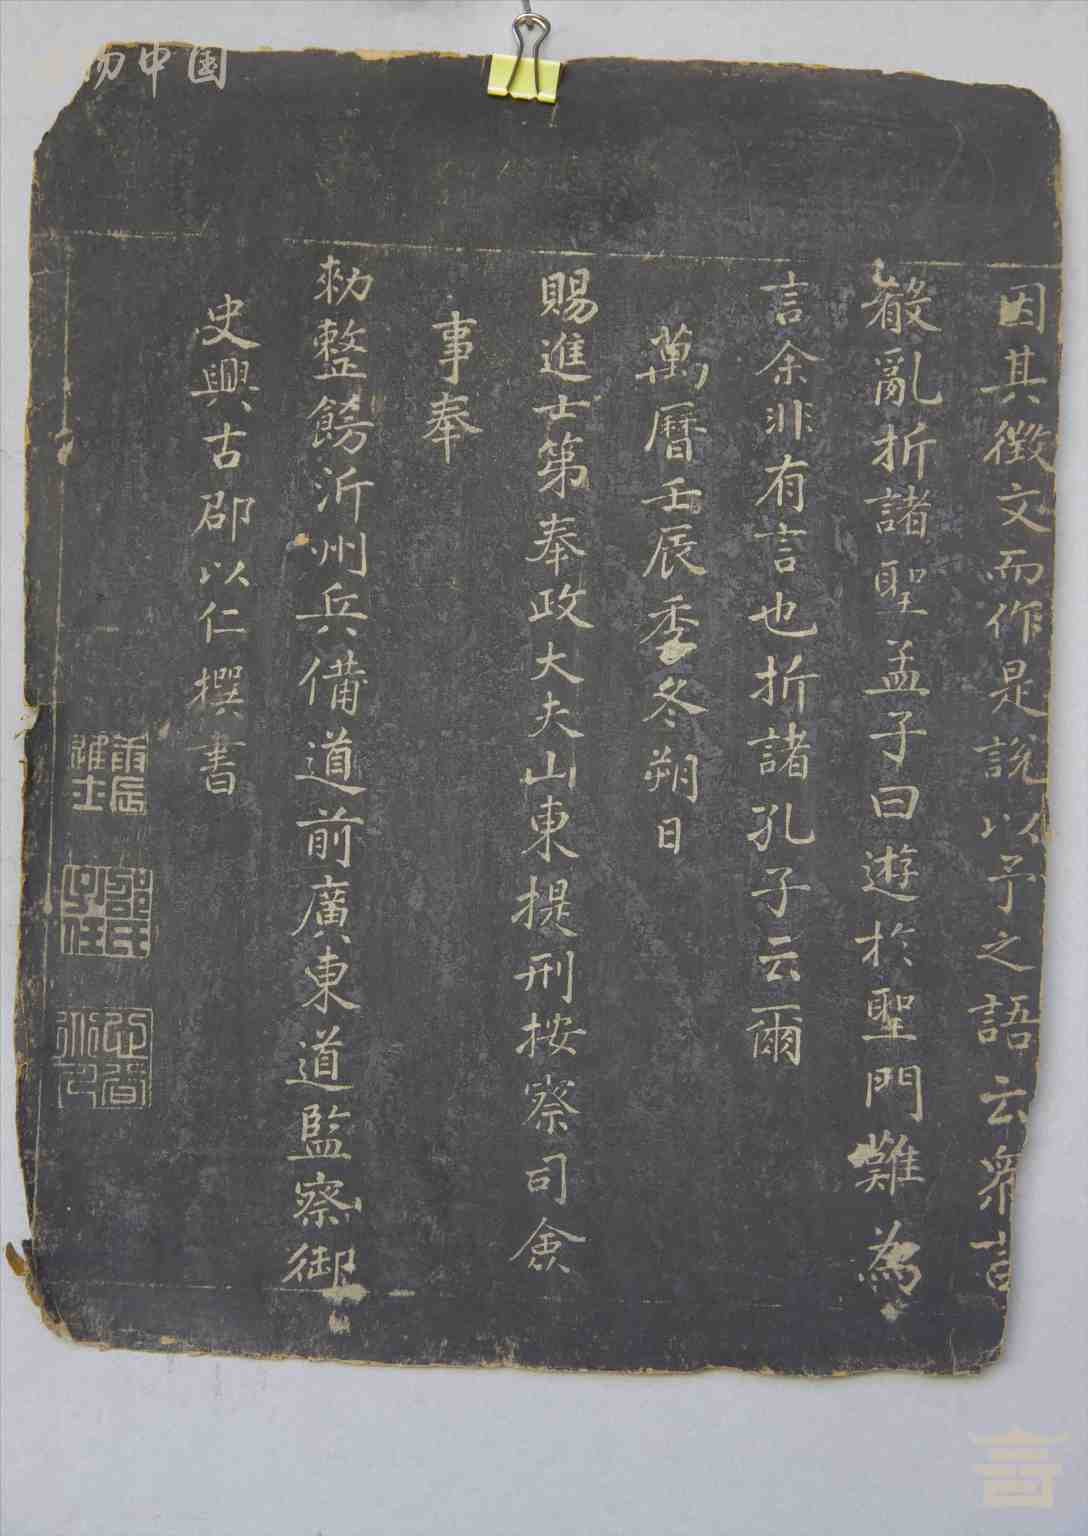 因其徵文而作是說以予之語云眾言
殽亂折諸聖孟子曰遊於聖門難為
言余非有言也折諸孔子云爾
萬曆壬辰季冬朔日
賜進士第奉政大夫山東提刑按察司僉
事奉
勑整飭沂州兵備道前廣東道監察御
史興古郡以仁撰書
庚辰進士
中国